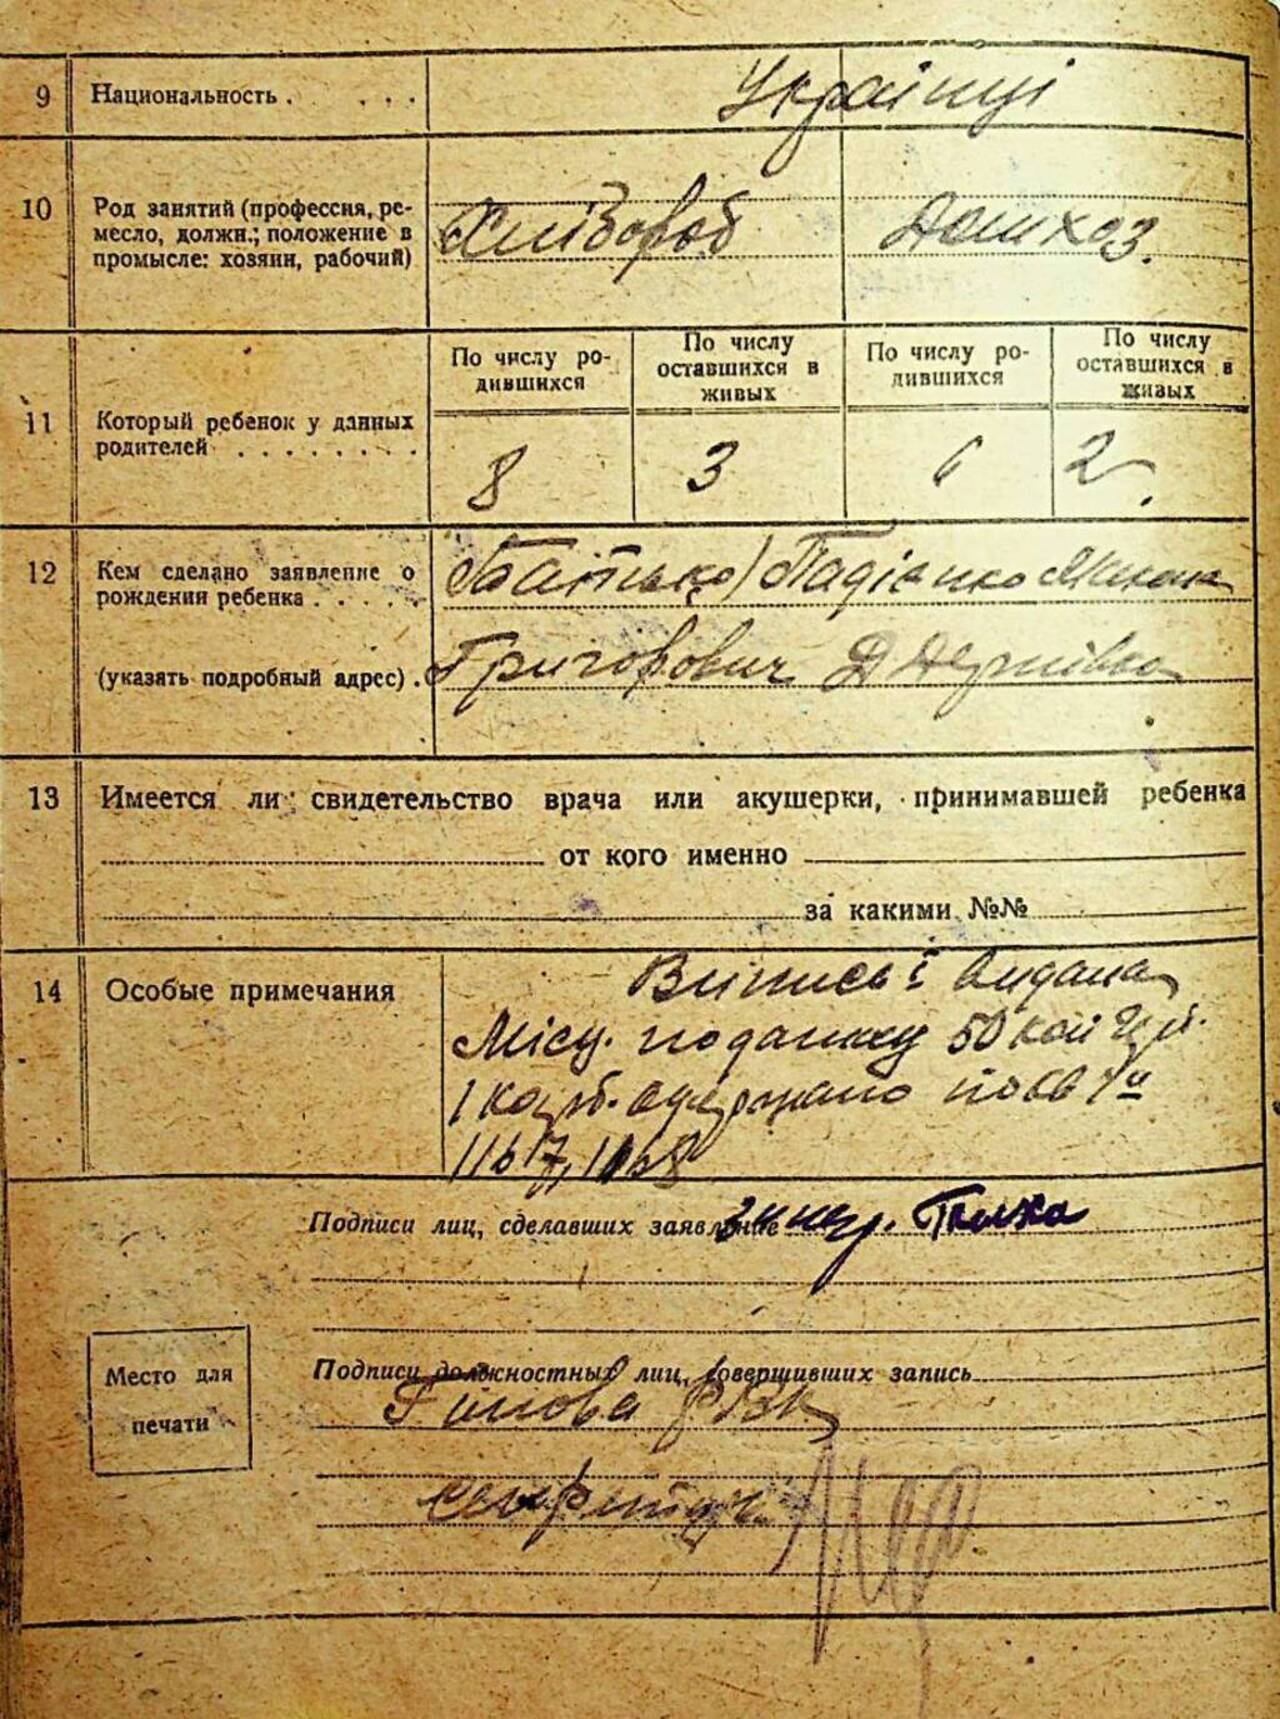 9 Национальность . . . . Українці
10 Род занятий (профессия, ре-
месло, должн.; положение в
промысле: хозяин, рабочий)
Хлібороб Дом хоз.
11 Который ребенок у данных
родителей . . . . . . . .
По числу ро-
дившихся
По числу
оставшихся в
живых
По числу ро-
дившихся
По числу
оставшихся в
живых
8 3 6 2
12 Кем сделано заявление о
рождения ребенка . . . . .
(указать подробный адрес) .
Батько
Григорович
13 Имеется ли свидетельство врача или акушерки, принимавшей ребенка
от кого именно
за какими №№
14 Особые примечания
Випись і видана
Місц. податку 50 коп
1 карб. одержано по кв
Подписи лиц, сделавших заявление
Место для
печати
Подписи должностных лиц, совершивших запись
Голова